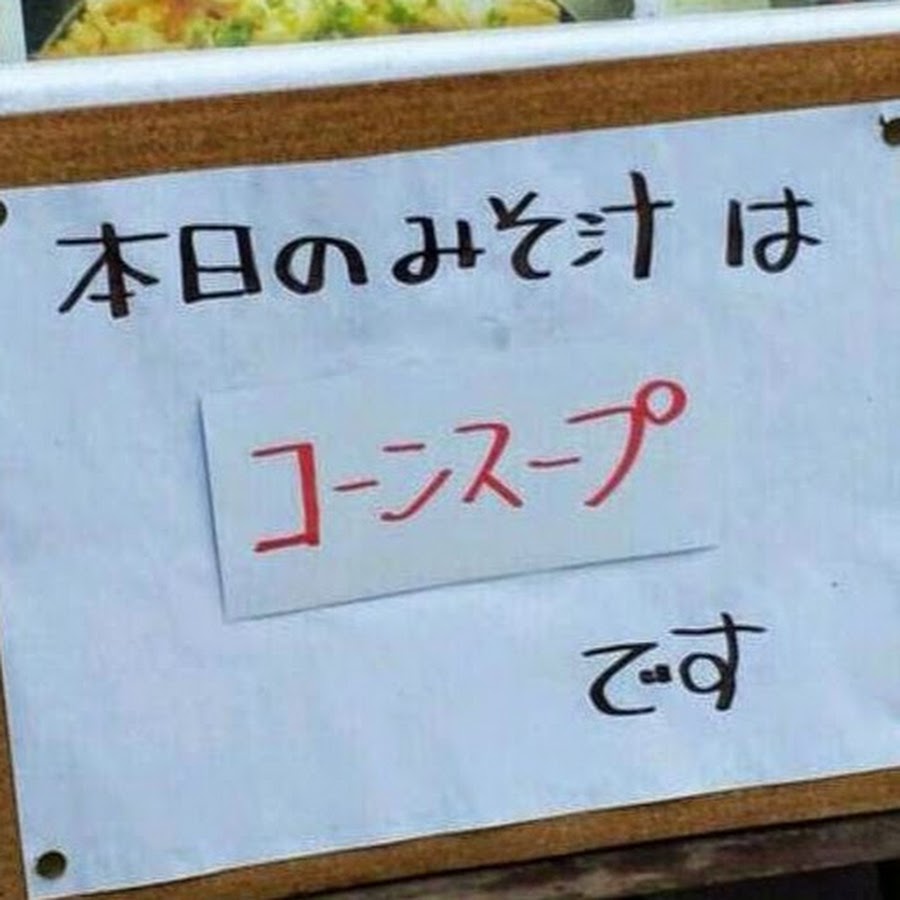 本日のみそ汁 は
コーンスープ
です